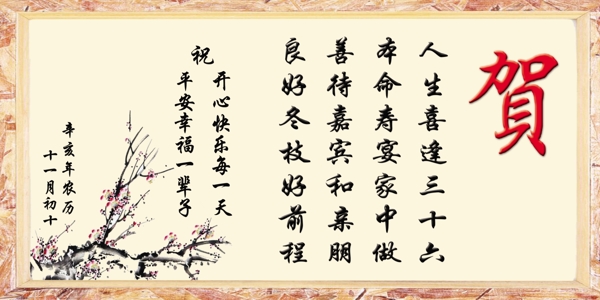 賀
人生喜逢三十六
本命寿宴家中做
善待嘉宾和亲朋
良好冬枝好前程
祝
开心快乐每一天
平安幸福一辈子
辛亥年农历
十一月初十